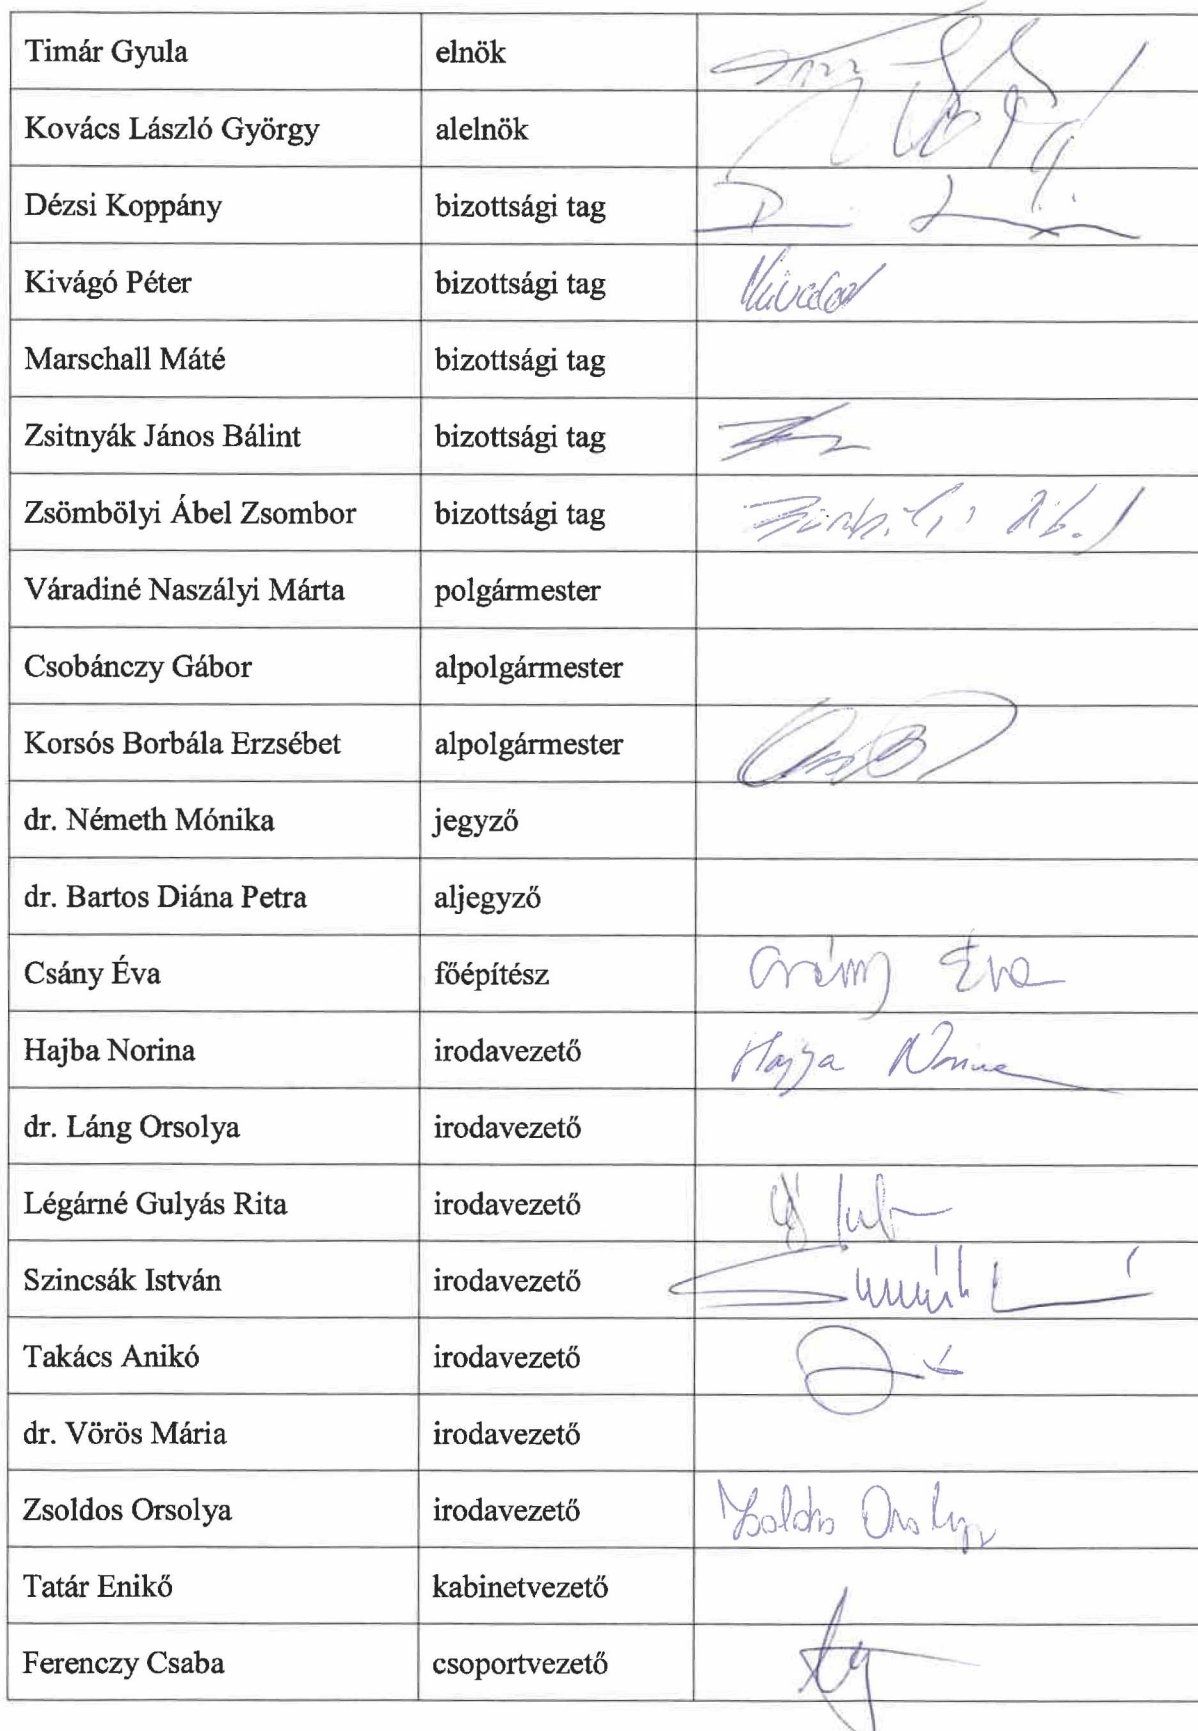 Timár Gyula elnök
Kovács László György alelnök
Dézsi Koppány bizottsági tag
Kivágó Péter bizottsági tag
Marschall Máté bizottsági tag
Zsitnyák János Bálint bizottsági tag
Zsömbölyi Ábel Zsombor bizottsági tag
Váradiné Naszályi Márta polgármester
Csobánczy Gábor alpolgármester
Korsós Borbála Erzsébet alpolgármester
dr. Németh Mónika jegyző
dr. Bartos Diána Petra aljegyző
Csány Éva főépítész Csány Éva
Hajba Norina irodavezető Hajba Norina
dr. Láng Orsolya irodavezető
Légárné Gulyás Rita irodavezető
Szincsák István irodavezető
Takács Anikó irodavezető
dr. Vörös Mária irodavezető
Zsoldos Orsolya irodavezető Zsoldos Orsolya
Tatár Enikő kabinetvezető
Ferenczy Csaba csoportvezető